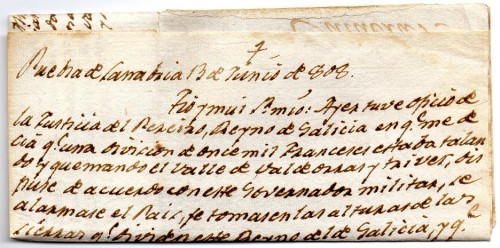 Puebla de Sanabria 13 de Junio de 808.
Tio y mui S.r mio: Ayer tuve oficio de
la Justicia del Reyno de Galicia en q.e me de
cia q.e una division de once mil Franceses estaba talan
do y quemando el Valle de Valdeorras y trives; dis
puse de acuerdo con este Governador militar, se
alarmase el Pais, se tomasen las alturas de las
sierras q.e dividen este Reyno del de Galicia, y q.e